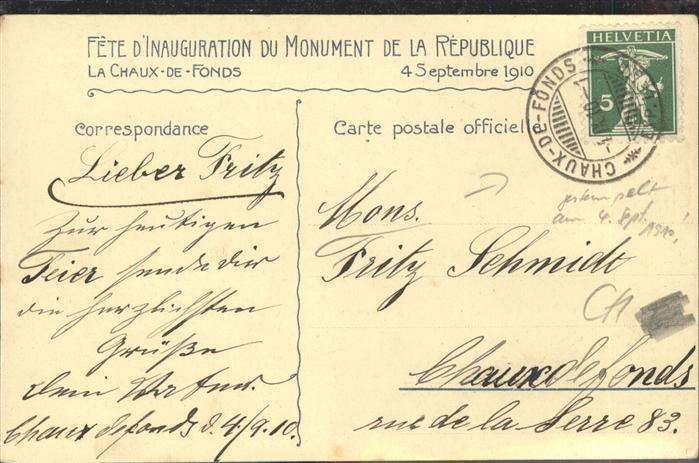 FÊTE D'INAUGURATION DU MONUMENT DE LA RÉPUBLIQUE
LA CHAUX-DE-FONDS 4 Septembre 1910
HELVETIA
5
CHAUX-DE-FONDS
Correspondance
Lieber Fritz
Zur heutigen
Feier sende dir
die herzlichsten
Grüße
dein Vater.
Chaux defonds d. 4/9.10.
Carte postale officielle
gestempelt
am 4. Sept. 1910!
Mons.
Fritz Schmidt
CH
Chauxdefonds
rue de la Serre 83.